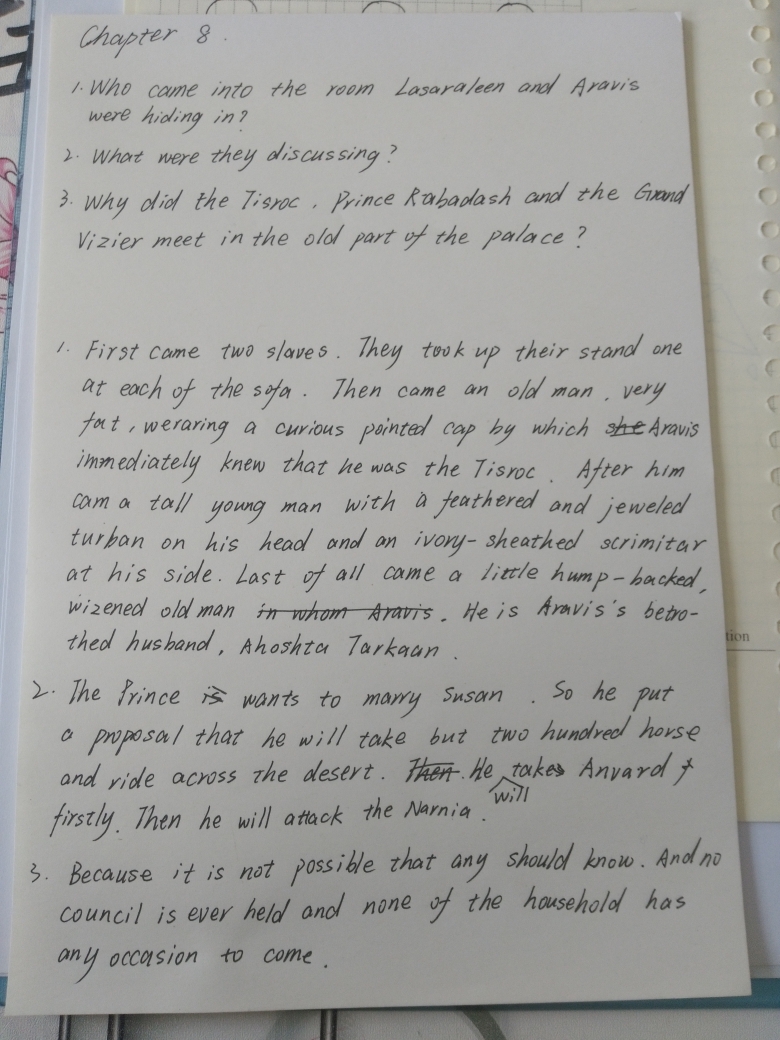 Chapter 8.
1. Who came into the room Lasaraleen and Aravis
were hiding in?
2. What were they discussing?
3. Why did the Tisroc, Prince Rabadash and the Grand
Vizier meet in the old part of the palace?
1. First came two slaves. They took up their stand one
at each of the sofa. Then came an old man, very
fat, weraring a curious pointed cap by which she Aravis
immediately knew that he was the Tisroc. After him
cam a tall young man with a feathered and jeweled
turban on his head and an ivory-sheathed scrimitar
at his side. Last of all came a little hump-backed,
wizened old man in whom Aravis. He is Aravis's betro-
thed husband, Ahoshta Tarkaan.
2. The Prince is wants to marry Susan. So he put
a proposal that he will take but two hundred horse
and ride across the desert. Then He will takes Anvard
firstly. Then he will attack the Narnia.
3. Because it is not possible that any should know. And no
council is ever held and none of the household has
any occasion to come.
tion